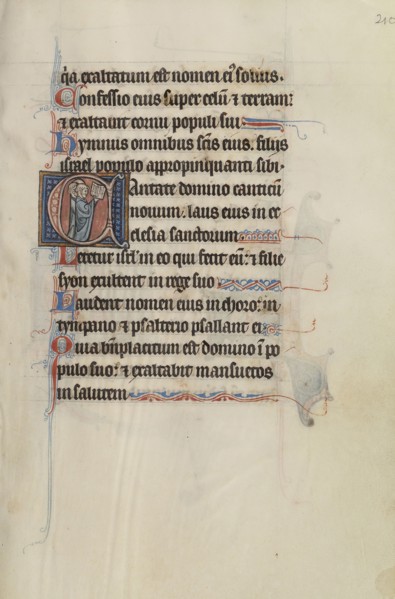 210
q̃a exaltatum est nomen eiꝰ solius.
Confessio eius super celũ ⁊ terram:
⁊ exaltauit cornu populi sui
Hymnus omnibus sc̃is eius. filijs
israel populo appropinquanti sibi.
Cantate domino canticũ
nouum. laus eius in ec
clesia sanctorum
Letetur isr̃l in eo qui fecit eũ: ⁊ filie
syon exultent in rege suo
Laudent nomen eius in choro: in
tympano ⁊ psalterio psallant ei
Quia bñplacitum est domino ĩ po
pulo suo: ⁊ exaltabit mansuetos
in salutem